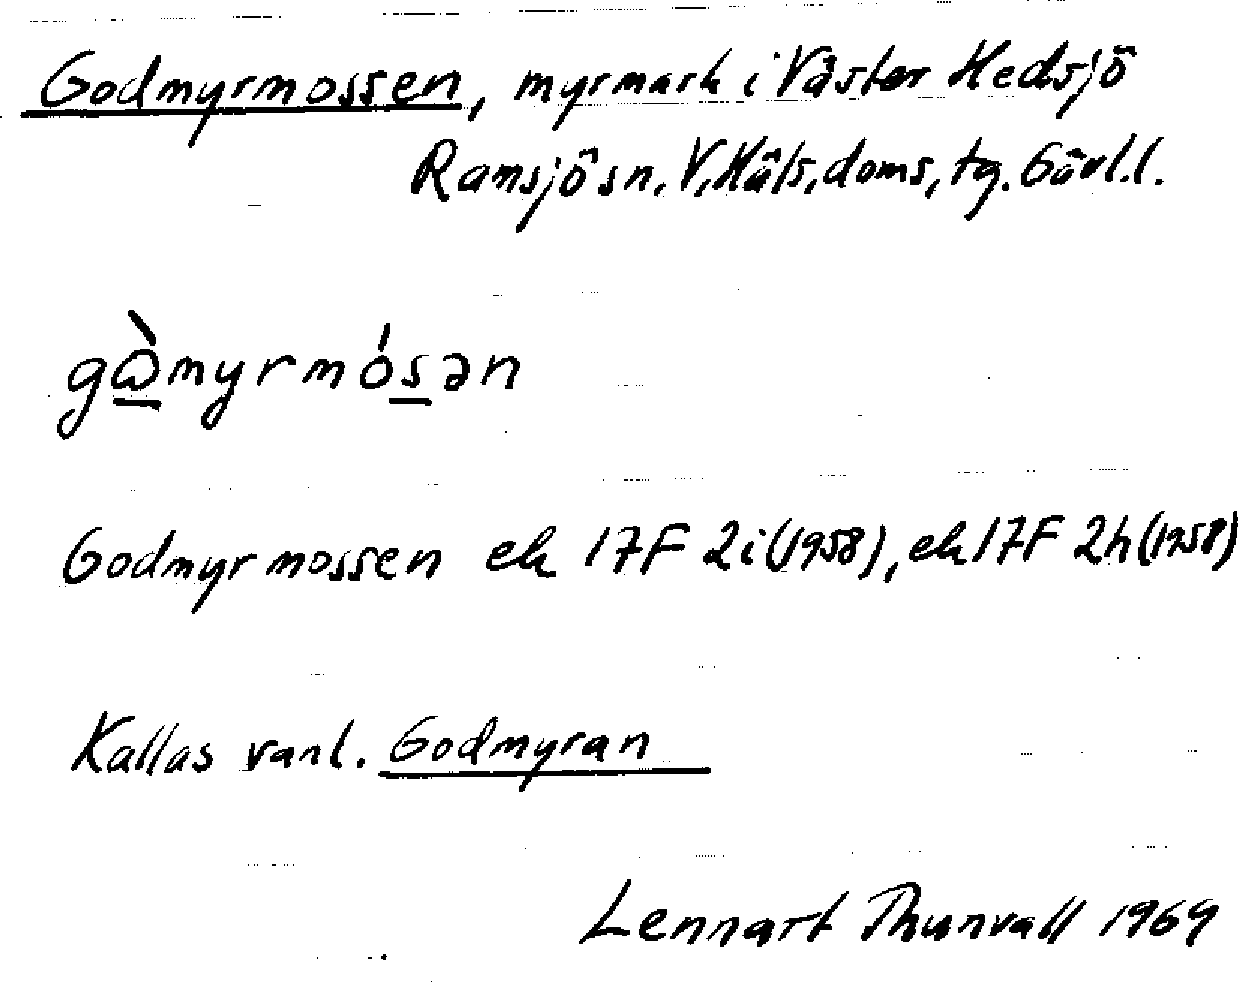 Godmyrmossen, myrmark i Väster Hedsjö
Ramsjö sn. V. Häls. doms. tg. Gävl. l.
gὼmyrmósən
Godmyrmossen ek 17F 2i (1958), ek 17F 2h (1958)
Kallas vanl. Godmyran
Lennart Thunvall 1969